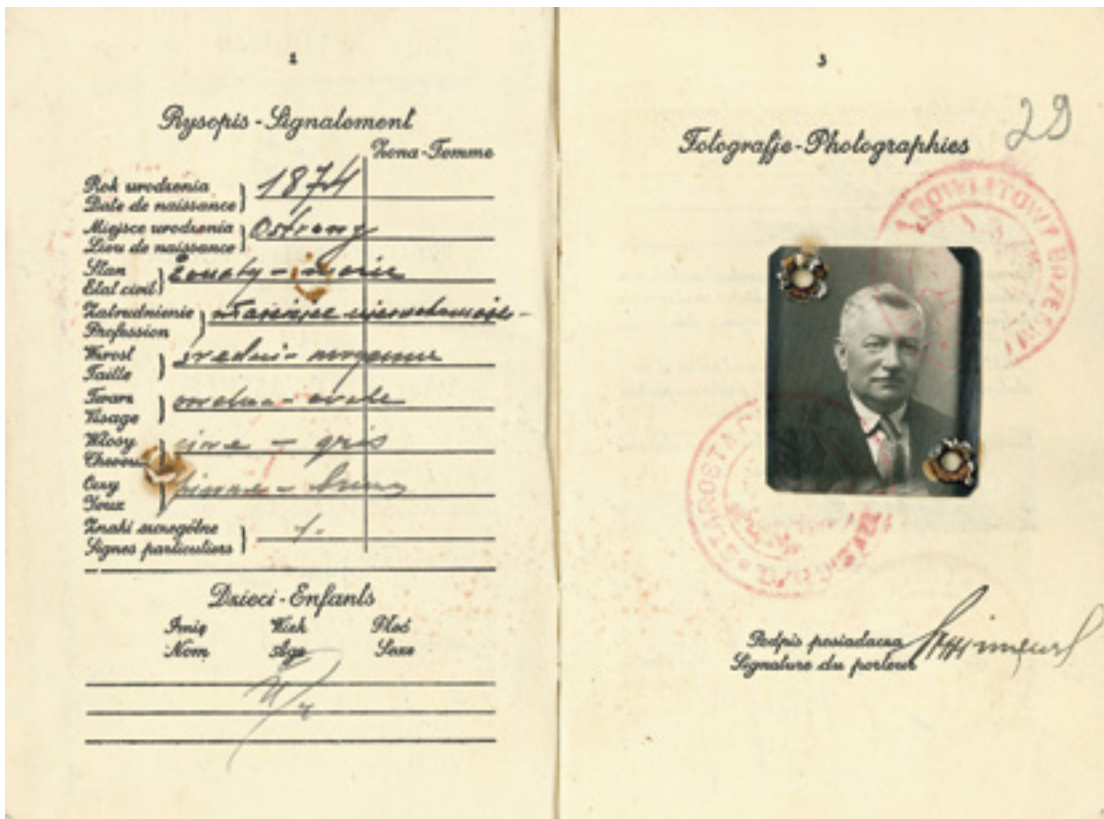 2
Rysopis - Signalement
Żona - Femme
Rok urodzenia
Date de naissance } 1874
Miejsce urodzenia
Lieu de naissance }
Stan
Etat civil } żonaty - marié
Zatrudnienie
Profession }
Wzrost
Taille } średni - moyenne
Twarz
Visage } owalna - ovale
Włosy
Cheveux } siwe - gris
Oczy
Yeux } piwne -
Znaki szczególne
Signes particuliers }
Dzieci - Enfants
Imię Wiek Płeć
Nom Age Sexe
3
29
Fotografje - Photographies
Podpis posiadacza
Signature du porteur